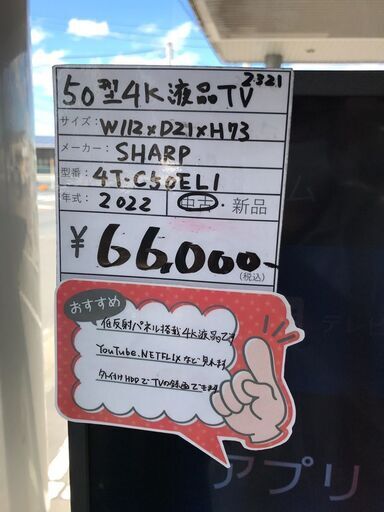 2321
50型4K液晶TV
サイズ: W112×D21×H73
メーカー: SHARP
型番: 4T-C50EL1
年式: 2022 中古・新品
¥66,000-
(税込)
おすすめ
低反射パネル搭載4K液晶です
YouTube.NETFLIXなど見れます
外付けHDDでTVの録画できます
アプリ